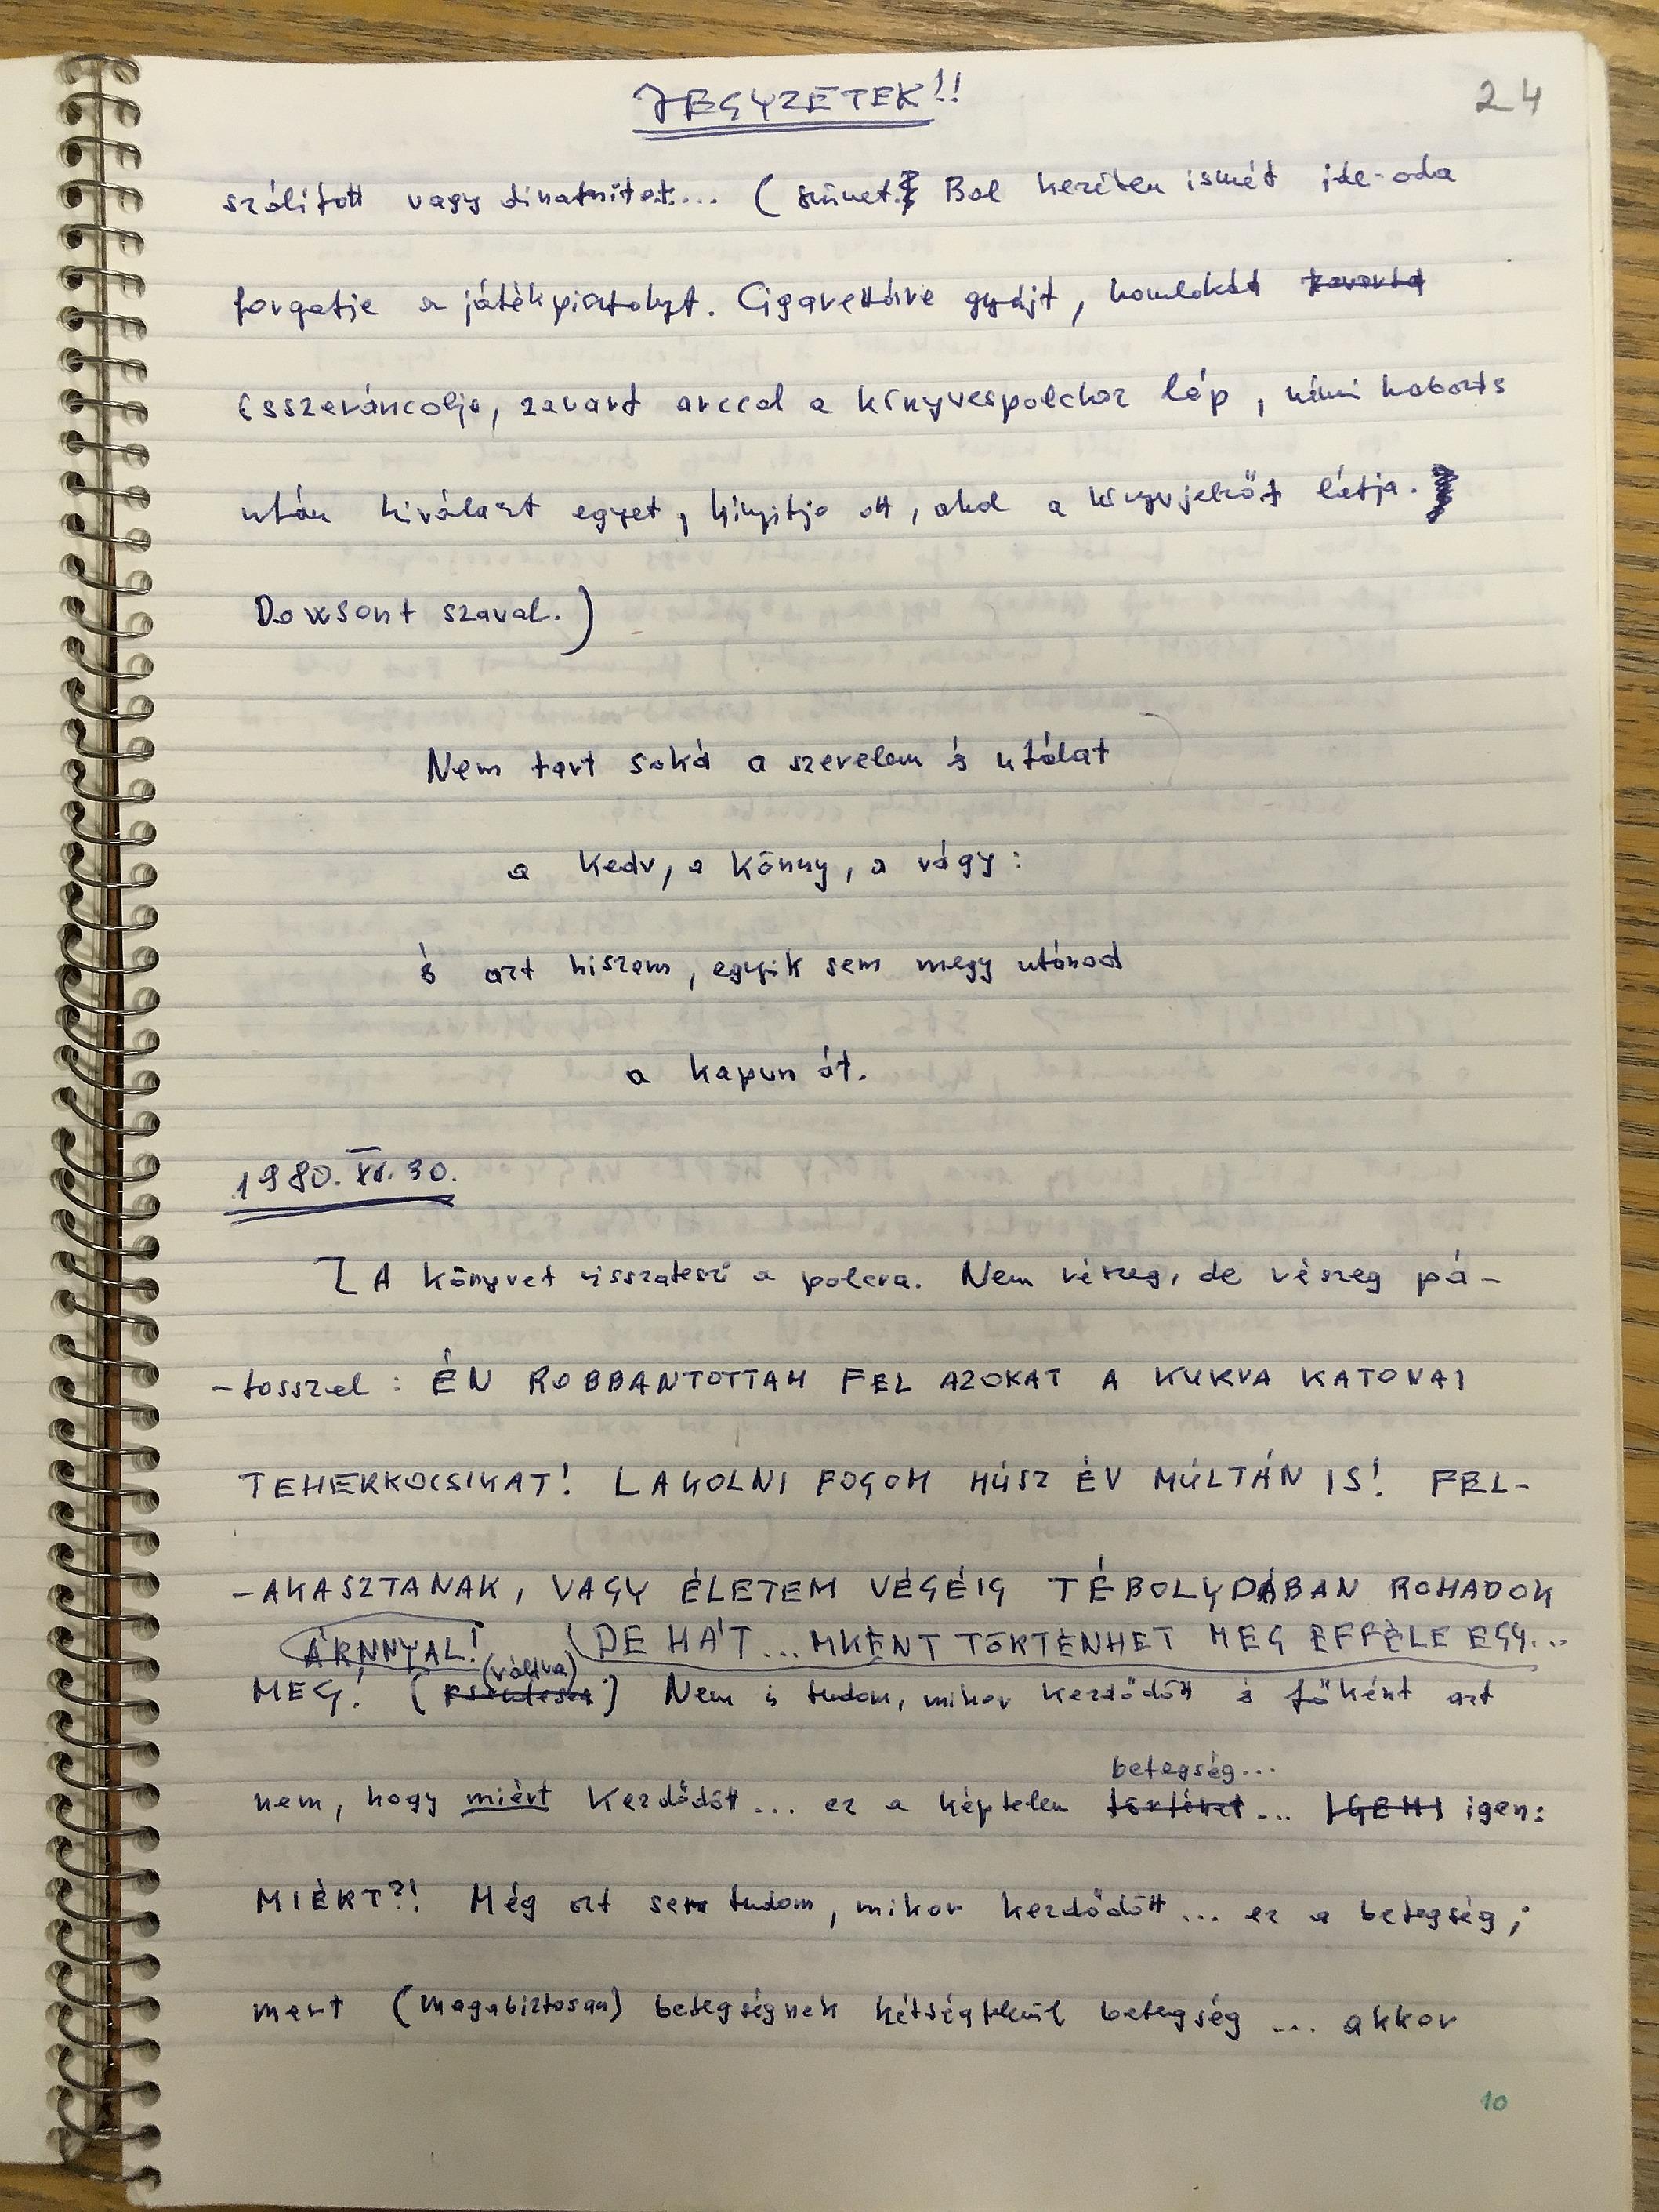 JEGYZETEK!!
24
szólított vagy dinamitot... (szünet. Bal kezében ismét ide-oda
forgatja a játékpisztolyt. Cigarettára gyújt, homlokát zavarta
összeráncolja, zavart arccal a könyvespolchoz lép, némi habozás
után kiválaszt egyet, kinyitja ott, ahol a könyvjelzőt látja.
Dowsont szaval.)
Nem tart soká a szerelem és utálat
a kedv, a könny, a vágy:
és azt hiszem, egyik sem megy utánad
a kapun át.
1980. XI. 30.
[A könyvet visszateszi a polcra. Nem részeg, de részeg pá-
-tosszal: ÉN ROBBANTOTTAM FEL AZOKAT A KURVA KATONAI
TEHERKOCSIKAT! LAKOLNI FOGOM HÚSZ ÉV MÚLTÁN IS! FEL-
-AKASZTANAK, VAGY ÉLETEM VÉGÉIG TÉBOLYDÁBAN ROHADOK
ÁRNNYAL! (DE HÁT... MKÉNT TÖRTÉNHET MEG EFFÉLE EGY...
(váltva)
MEG! () Nem is tudom, mikor kezdődött és főként azt
betegség...
nem, hogy miért kezdődött... ez a képtelen történet... IGEN! igen:
MIÉRT?! Még azt sem tudom, mikor kezdődött... ez a betegség;
mert (magabiztosan) betegségnek kétségtelenül betegség ... akkor
10